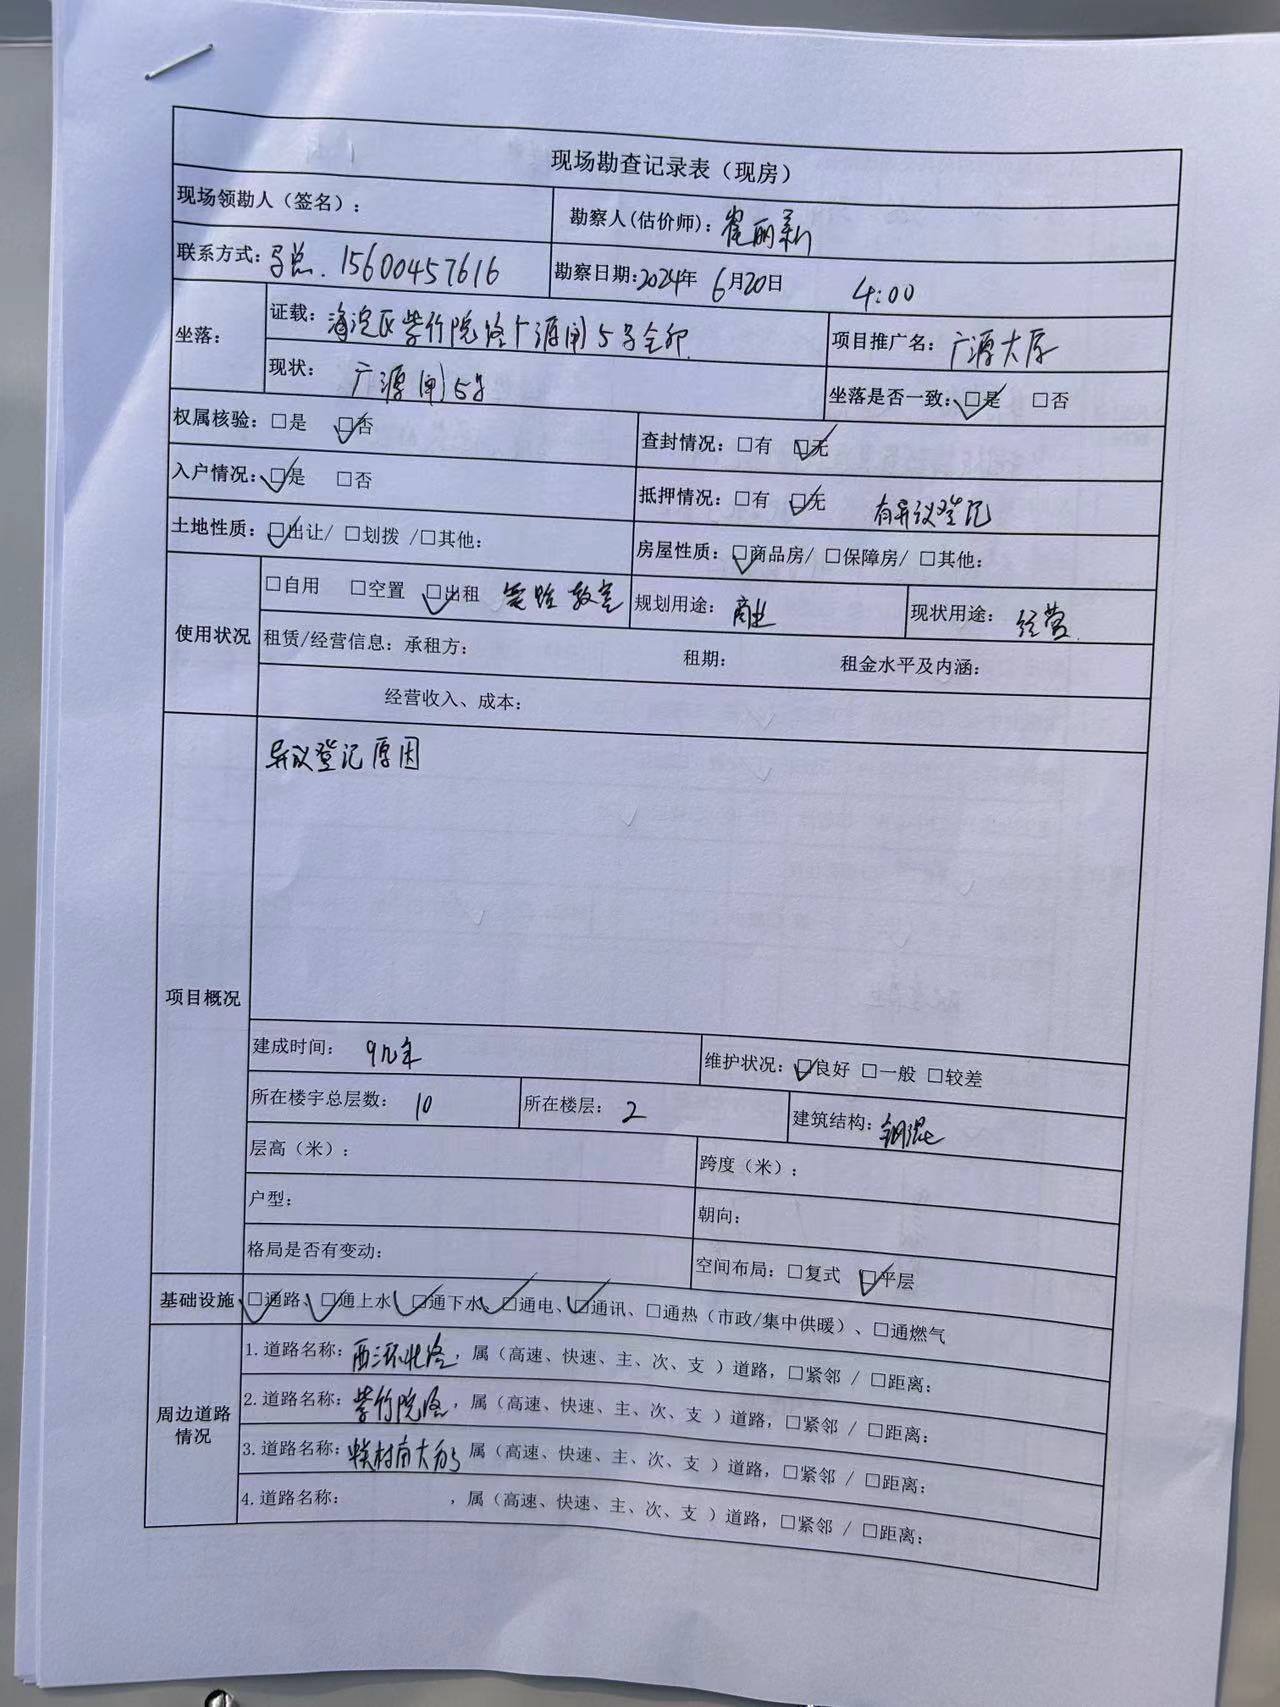 现场勘查记录表（现房）
现场领勘人（签名）： 勘察人(估价师)： 崔丽新
联系方式：马总. 15600457616 勘察日期:2024年 6月20日 4:00
坐落： 证载： 海淀区紫竹院路广源闸5号全部. 项目推广名： 广源大厦
现状： 广源闸5号 坐落是否一致：☑是 □否
权属核验：□是 ☑否 查封情况：□有 ☑无
入户情况：☑是 □否 抵押情况：□有 ☑无 有异议登记
土地性质：☑出让/ □划拨 /□其他： 房屋性质：☑商品房/ □保障房/ □其他：
使用状况 □自用 □空置 ☑出租 教室 规划用途： 商业 现状用途： 经营.
租赁/经营信息：承租方： 租期： 租金水平及内涵：
经营收入、成本：
项目概况 异议登记原因
建成时间： 9几年 维护状况：☑良好 □一般 □较差
所在楼宇总层数： 10 所在楼层： 2 建筑结构：钢混
层高（米）： 跨度（米）：
户型： 朝向：
格局是否有变动： 空间布局：□复式 ☑平层
基础设施 ☑通路、☑通上水、☑通下水、☑通电、☑通讯、□通热（市政/集中供暖）、□通燃气
周边道路情况 1.道路名称：西三环北路，属（高速、快速、主、次、支）道路，□紧邻 / □距离：
2.道路名称：紫竹院路，属（高速、快速、主、次、支 ）道路，□紧邻 / □距离：
3.道路名称：村南大街，属（高速、快速、主、次、支 ）道路，□紧邻 / □距离：
4.道路名称： ，属（高速、快速、主、次、支 ）道路，□紧邻 / □距离：